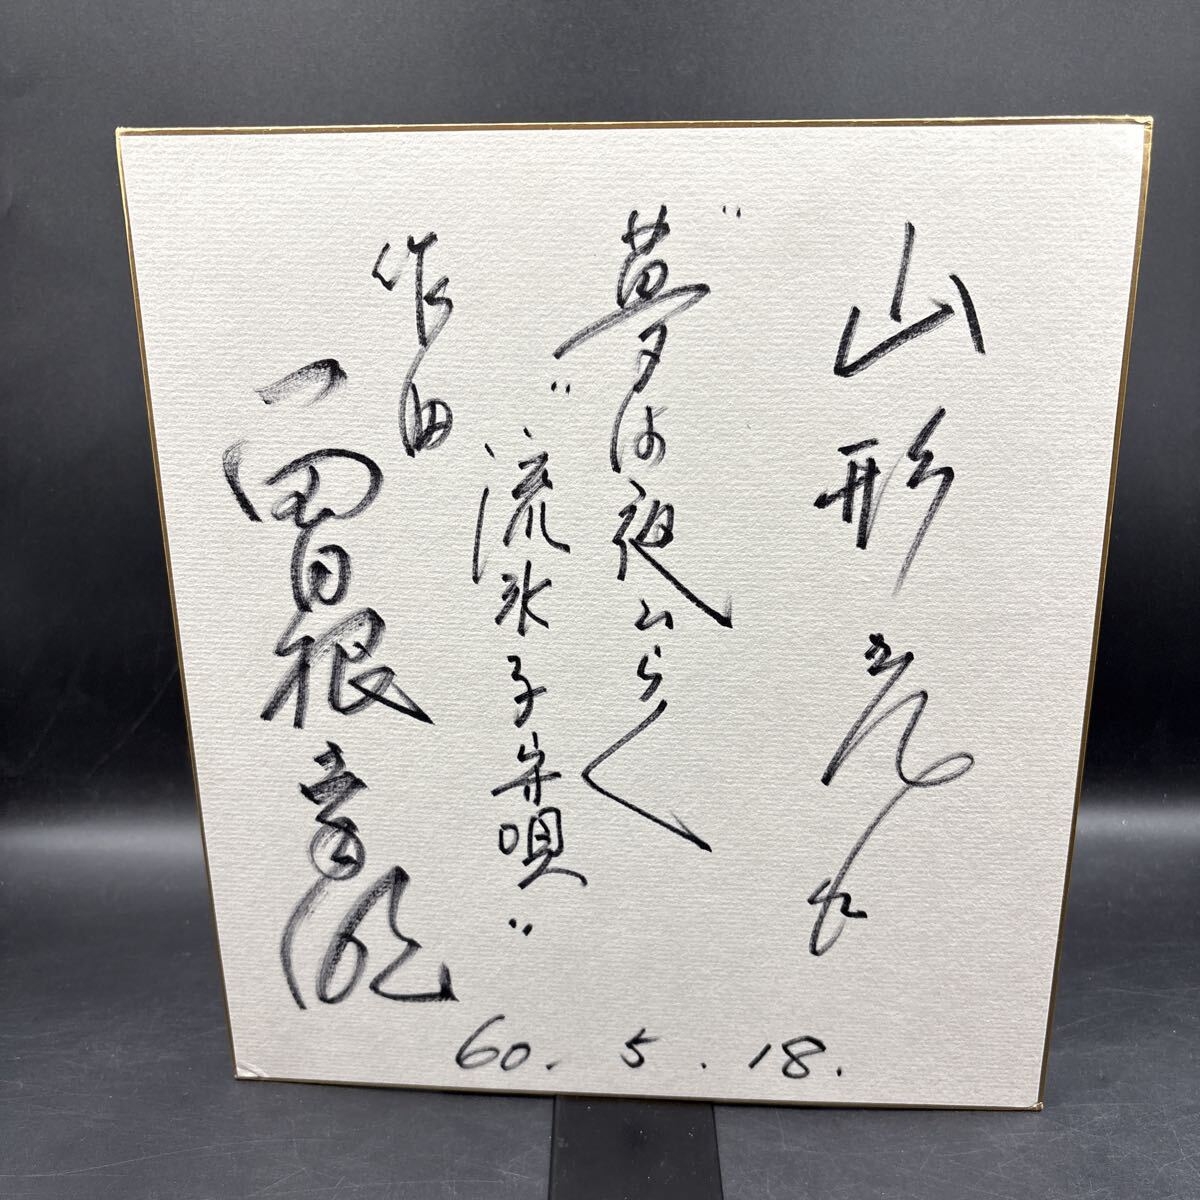 山形
"夢は夜ひらく
"流氷子守唄"
作曲
曽根幸明
60.5.18.